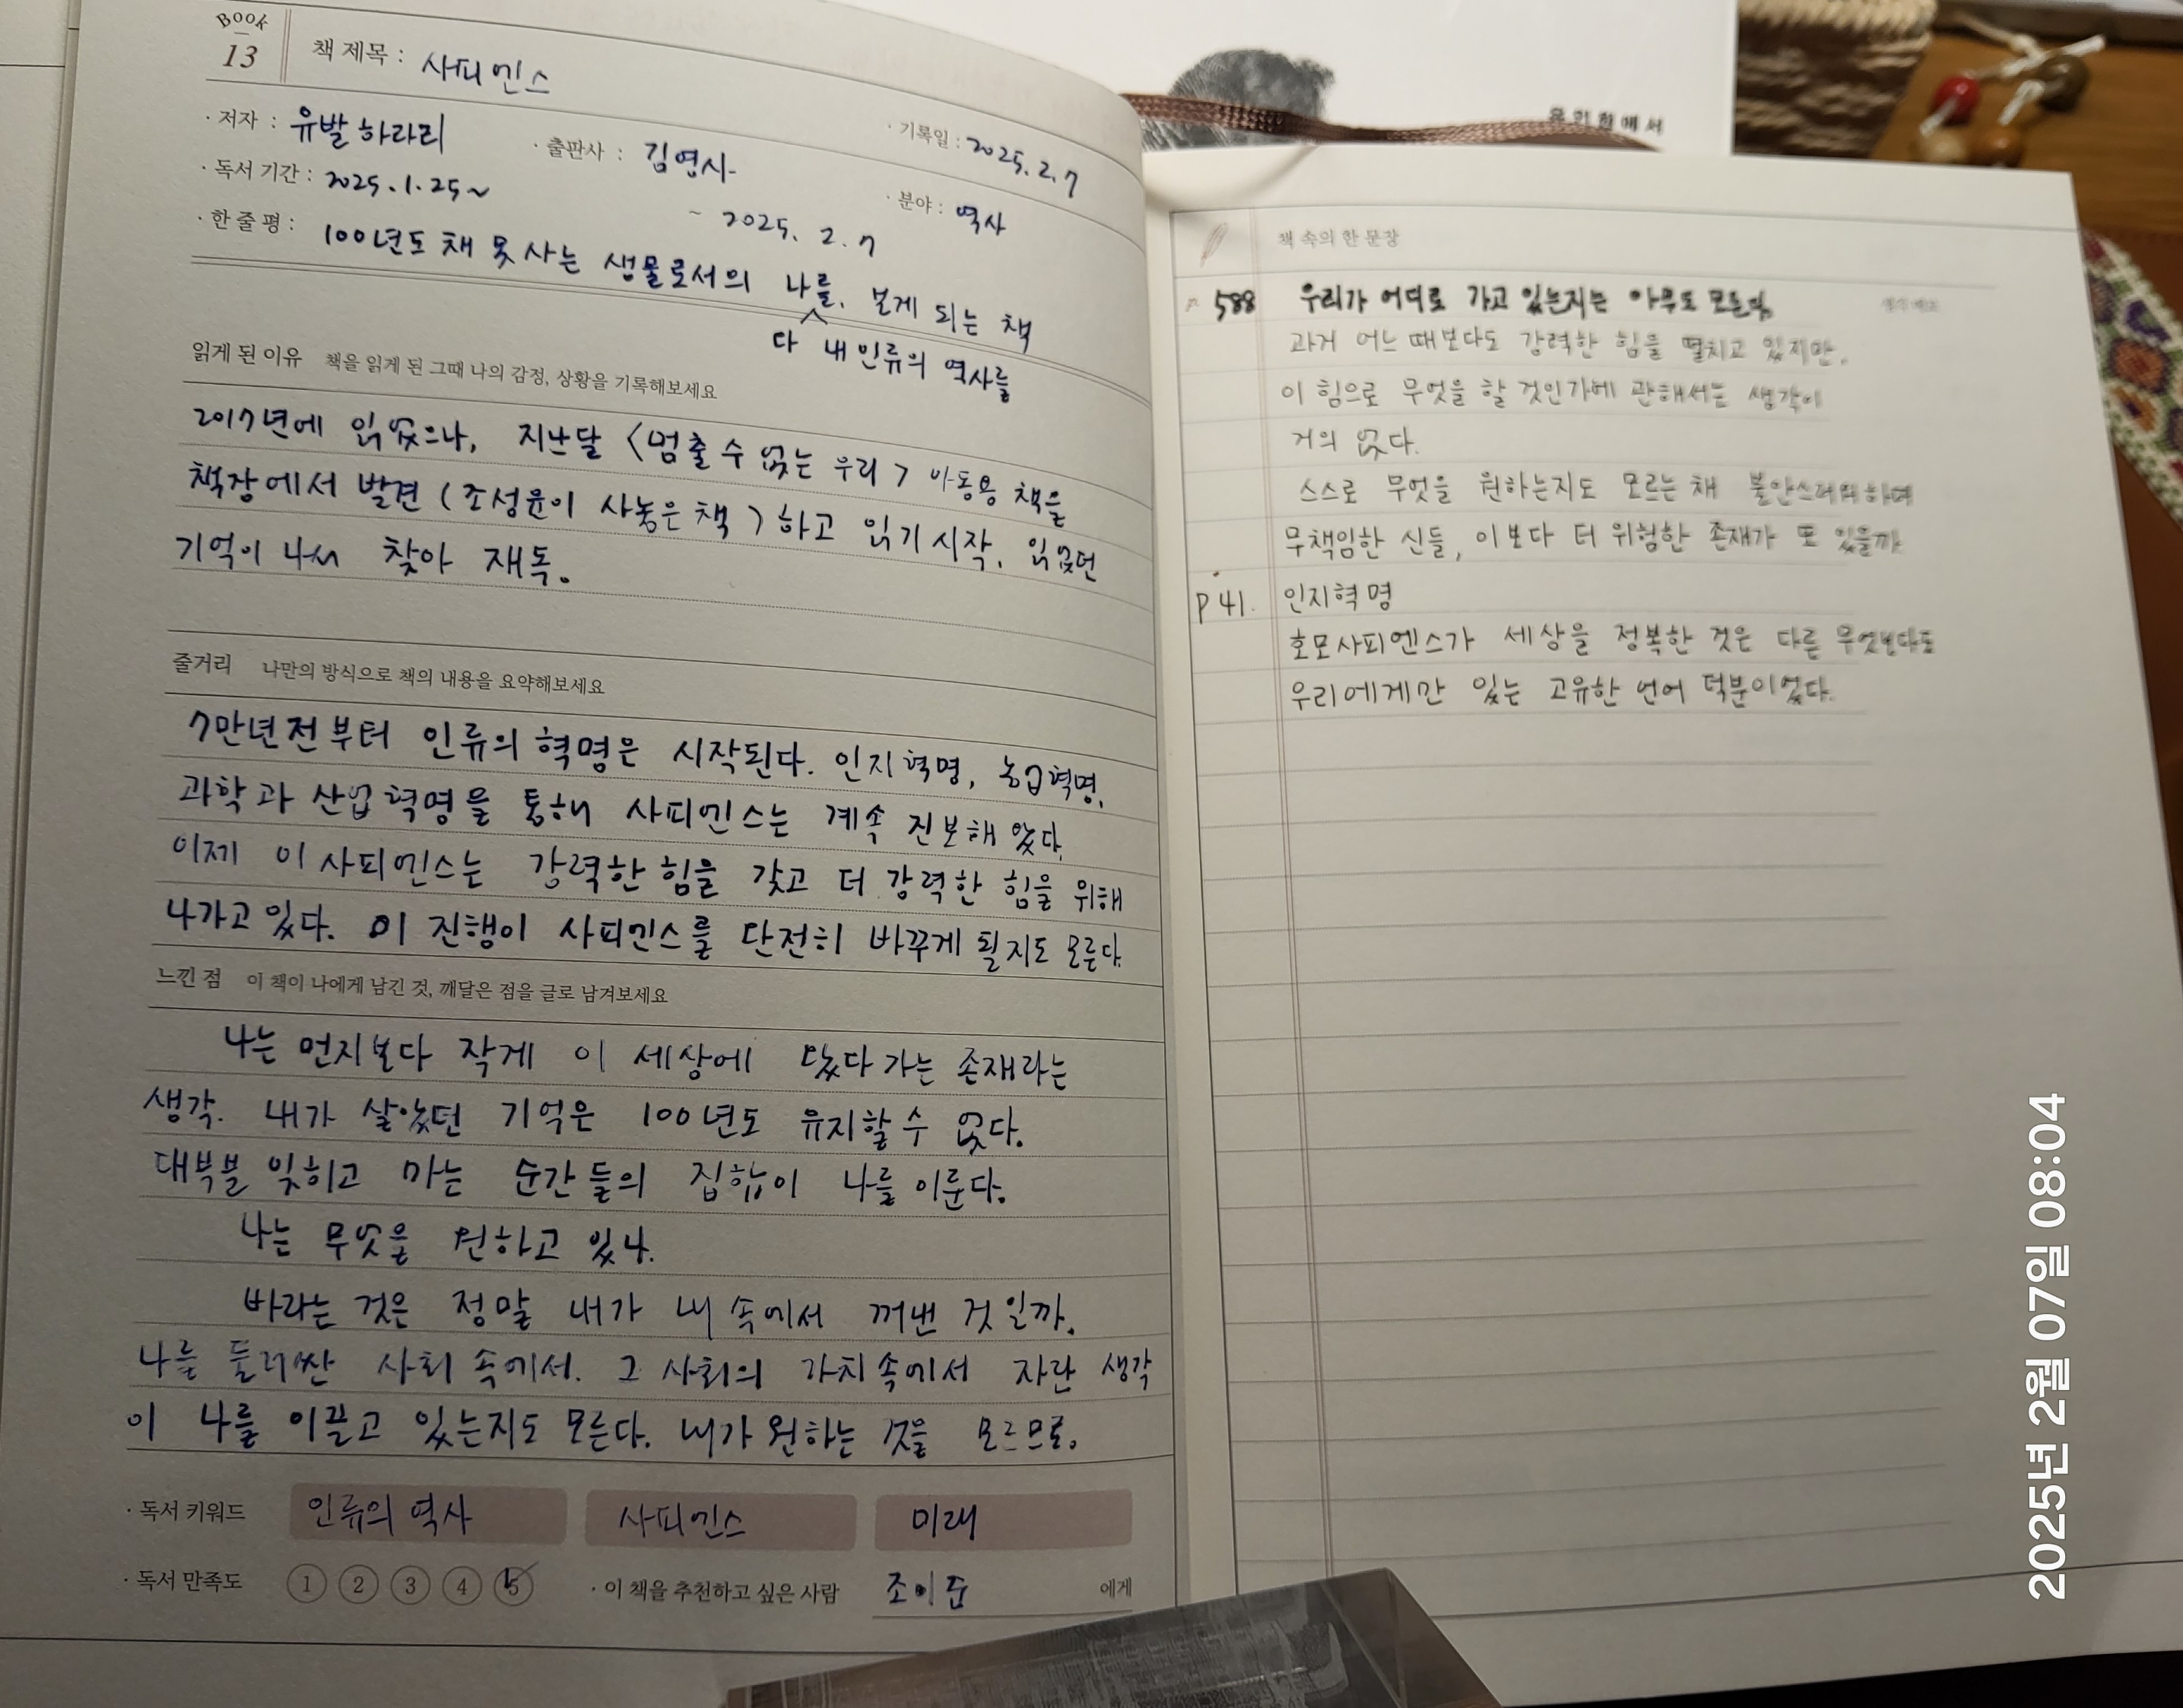 Book
13
책 제목 : 사피엔스
· 기록일 : 2025. 2. 7
· 저자 : 유발 하라리
· 출판사 : 김영사
· 분야 : 역사
· 독서 기간 : 2025. 1. 25 ~
~ 2025. 2. 7
· 한 줄 평 : 100년도 채 못 사는 생물로서의 나를, 보게 되는 책
다 내 인류의 역사를
읽게 된 이유 책을 읽게 된 그때 나의 감정, 상황을 기록해보세요
2017년에 읽었으나, 지난달 <멈출 수 없는 우리> 아동용 책을
책장에서 발견 (조성윤이 사놓은 책) 하고 읽기 시작. 읽었던
기억이 나서 찾아 재독.
줄거리 나만의 방식으로 책의 내용을 요약해보세요
7만년전부터 인류의 혁명은 시작된다. 인지혁명, 농업혁명,
과학과 산업혁명을 통해 사피엔스는 계속 진보해 왔다.
이제 이 사피엔스는 강력한 힘을 갖고 더 강력한 힘을 위해
나가고 있다. 이 진행이 사피엔스를 단전히 바꾸게 될지도 모른다.
느낀 점 이 책이 나에게 남긴 것, 깨달은 점을 글로 남겨보세요
나는 먼지보다 작게 이 세상에 왔다 가는 존재라는
생각. 내가 살았던 기억은 100년도 유지할 수 없다.
대부분 잊히고 마는 순간들의 집합이 나를 이룬다.
나는 무엇을 원하고 있나.
바라는 것은 정말 내가 내 속에서 꺼낸 것일까.
나를 둘러싼 사회 속에서. 그 사회의 가치 속에서 자란 생각
이 나를 이끌고 있는지도 모른다. 내가 원하는 것을 모르므로.
· 독서 키워드 인류의 역사 사피엔스 미래
· 독서 만족도 1 2 3 4 5 · 이 책을 추천하고 싶은 사람 조이준 에게
에서
책 속의 한 문장
p 588 우리가 어디로 가고 있는지는 아무도 모른다.
과거 어느 때보다도 강력한 힘을 떨치고 있지만,
이 힘으로 무엇을 할 것인가에 관해서는 생각이
거의 없다.
스스로 무엇을 원하는지도 모르는 채 불만스러워하며
무책임한 신들, 이보다 더 위험한 존재가 또 있을까
p 41. 인지혁명
호모사피엔스가 세상을 정복한 것은 다른 무엇보다도
우리에게만 있는 고유한 언어 덕분이었다.
2025년 2월 07일 08:04